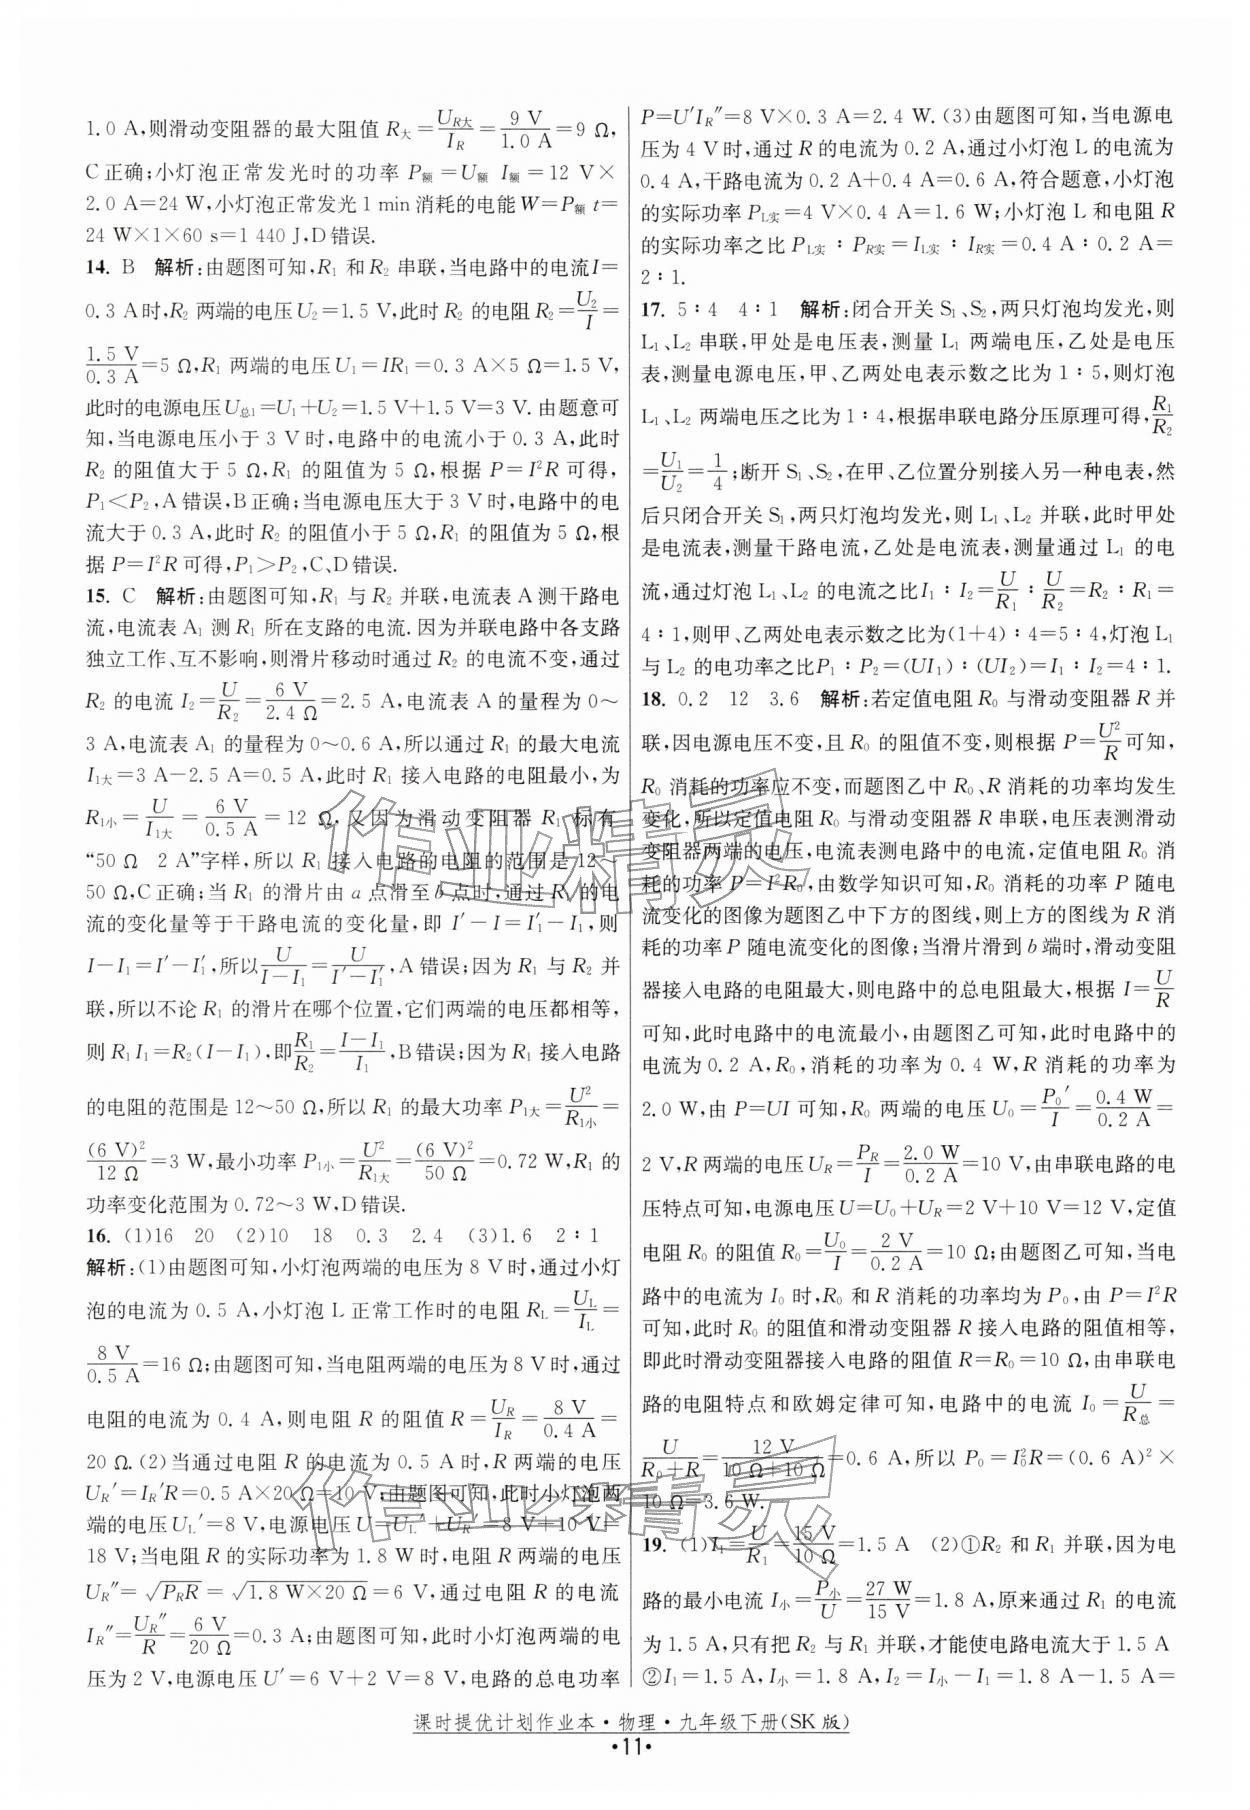 1.0 A,则滑动变阻器的最大阻值 R大=UR大/IR=9 V/1.0 A=9 Ω,
C正确;小灯泡正常发光时的功率 P额=U额 I额=12 V×
2.0 A=24 W,小灯泡正常发光1 min消耗的电能W=P额 t=
24 W×1×60 s=1 440 J,D错误.
14. B 解析:由题图可知,R1 和 R2 串联,当电路中的电流I=
0.3 A时,R2 两端的电压U2=1.5 V,此时 R2 的电阻 R2=U2/I=
1.5 V/0.3 A=5 Ω,R1 两端的电压U1=IR1=0.3 A×5 Ω=1.5 V,
此时的电源电压U总1=U1+U2=1.5 V+1.5 V=3 V.由题意可
知,当电源电压小于 3 V时,电路中的电流小于0.3 A,此时
R2 的阻值大于 5 Ω,R1 的阻值为 5 Ω,根据 P=I²R 可得,
P1<P2,A错误,B正确;当电源电压大于 3 V时,电路中的电
流大于0.3 A,此时 R2 的阻值小于5 Ω,R1 的阻值为 5 Ω,根
据 P=I²R可得,P1>P2,C、D错误.
15. C 解析:由题图可知,R1 与 R2 并联,电流表 A 测干路电
流,电流表 A1 测 R1 所在支路的电流.因为并联电路中各支路
独立工作、互不影响,则滑片移动时通过 R2 的电流不变,通过
R2 的电流 I2=U/R2=6 V/2.4 Ω=2.5 A,电流表 A 的量程为 0~
3 A,电流表 A1 的量程为 0~0.6 A,所以通过 R1 的最大电流
I1大=3 A-2.5 A=0.5 A,此时 R1 接入电路的电阻最小,为
R1小=U/I1大=6 V/0.5 A=12 Ω,又因为滑动变阻器 R1 标有
“50 Ω 2 A”字样,所以 R1 接入电路的电阻的范围是 12~
50 Ω,C正确;当 R1 的滑片由 a 点滑至 b 点时,通过 R1 的电
流的变化量等于干路电流的变化量,即 I′-I=I1′-I1,则
I-I1=I′-I1′,所以U/(I-I1)=U/(I′-I1′),A错误;因为 R1 与 R2 并
联,所以不论 R1 的滑片在哪个位置,它们两端的电压都相等,
则 R1 I1=R2(I-I1),即R1/R2=(I-I1)/I1,B错误;因为 R1 接入电路
的电阻的范围是 12~50 Ω,所以 R1 的最大功率 P1大=U²/R1小=
(6 V)²/12 Ω=3 W,最小功率 P1小=U²/R1大=(6 V)²/50 Ω=0.72 W,R1 的
功率变化范围为 0.72~3 W,D错误.
16. (1)16 20 (2)10 18 0.3 2.4 (3)1.6 2∶1
解析:(1)由题图可知,小灯泡两端的电压为 8 V时,通过小灯
泡的电流为 0.5 A,小灯泡 L 正常工作时的电阻 RL=UL/IL=
8 V/0.5 A=16 Ω;由题图可知,当电阻两端的电压为 8 V时,通过
电阻的电流为 0.4 A,则电阻 R 的阻值 R=UR/IR=8 V/0.4 A=
20 Ω.(2)当通过电阻 R 的电流为 0.5 A时,R 两端的电压
UR′=IR′R=0.5 A×20 Ω=10 V;由题图可知,此时小灯泡两
端的电压UL′=8 V,电源电压U=UL′+UR′=8 V+10 V=
18 V;当电阻 R 的实际功率为 1.8 W时,R 两端的电压
UR″=√PRR=√1.8 W×20 Ω=6 V,通过电阻 R 的电流
IR″=UR″/R=6 V/20 Ω=0.3 A;由题图可知,此时小灯泡两端的电
压为2 V,电源电压 U′=6 V+2 V=8 V,电路的总电功率
P=U′IR″=8 V×0.3 A=2.4 W.(3)由题图可知,当电源电
压为4 V时,通过 R 的电流为 0.2 A,通过小灯泡 L 的电流为
0.4 A,干路电流为 0.2 A+0.4 A=0.6 A,符合题意,小灯泡
的实际功率 PL实=4 V×0.4 A=1.6 W;小灯泡 L 和电阻 R
的实际功率之比 PL实∶PR实=IL实∶IR实=0.4 A∶0.2 A=
2∶1.
17. 5∶4 4∶1 解析:闭合开关 S1、S2,两只灯泡均发光,则
L1、L2 串联,甲处是电压表,测量 L1 两端电压,乙处是电压
表,测量电源电压,甲、乙两处电表示数之比为 1∶5,则灯泡
L1、L2 两端电压之比为 1∶4,根据串联电路分压原理可得,R1/R2
=U1/U2=1/4;断开 S1、S2,在甲、乙位置分别接入另一种电表,然
后只闭合开关 S1,两只灯泡均发光,则 L1、L2 并联,此时甲处
是电流表,测量干路电流,乙处是电流表,测量通过 L1 的电
流,通过灯泡 L1、L2 的电流之比I1∶I2=U/R1∶U/R2=R2∶R1=
4∶1,则甲、乙两处电表示数之比为(1+4)∶4=5∶4,灯泡 L1
与 L2 的电功率之比P1∶P2=(UI1)∶(UI2)=I1∶I2=4∶1.
18. 0.2 12 3.6 解析:若定值电阻 R0 与滑动变阻器 R 并
联,因电源电压不变,且 R0 的阻值不变,则根据 P=U²/R可知,
R0 消耗的功率应不变,而题图乙中 R0、R 消耗的功率均发生
变化,所以定值电阻 R0 与滑动变阻器 R 串联,电压表测滑动
变阻器两端的电压,电流表测电路中的电流,定值电阻 R0 消
耗的功率 P=I²R0,由数学知识可知,R0 消耗的功率 P 随电
流变化的图像为题图乙中下方的图线,则上方的图线为 R 消
耗的功率 P 随电流变化的图像;当滑片滑到 b 端时,滑动变阻
器接入电路的电阻最大,则电路中的总电阻最大,根据 I=U/R
可知,此时电路中的电流最小,由题图乙可知,此时电路中的
电流为 0.2 A,R0,消耗的功率为 0.4 W,R 消耗的功率为
2.0 W,由 P=UI 可知,R0 两端的电压 U0=P0′/I=0.4 W/0.2 A=
2 V,R两端的电压UR=PR/I=2.0 W/0.2 A=10 V,由串联电路的电
压特点可知,电源电压U=U0+UR=2 V+10 V=12 V,定值
电阻 R0 的阻值 R0=U0/I=2 V/0.2 A=10 Ω;由题图乙可知,当电
路中的电流为 I0 时,R0 和 R 消耗的功率均为 P0,由 P=I²R
可知,此时 R0 的阻值和滑动变阻器 R 接入电路的阻值相等,
即此时滑动变阻器接入电路的阻值 R=R0=10 Ω,由串联电
路的电阻特点和欧姆定律可知,电路中的电流 I0=U/R总=
U/(R0+R)=12 V/(10 Ω+10 Ω)=0.6 A,所以 P0=I0²R=(0.6 A)²×
10 Ω=3.6 W.
19. (1)I1=U/R1=15 V/10 Ω=1.5 A (2)①R2 和 R1 并联,因为电
路的最小电流 I小=P小/U=27 W/15 V=1.8 A,原来通过 R1 的电流
为 1.5 A,只有把 R2 与 R1 并联,才能使电路电流大于 1.5 A
②I1=1.5 A,I小=1.8 A,I2=I小-I1=1.8 A-1.5 A=
作业精灵
作业精灵
课时提优计划作业本·物理·九年级下册(SK版)
·11·